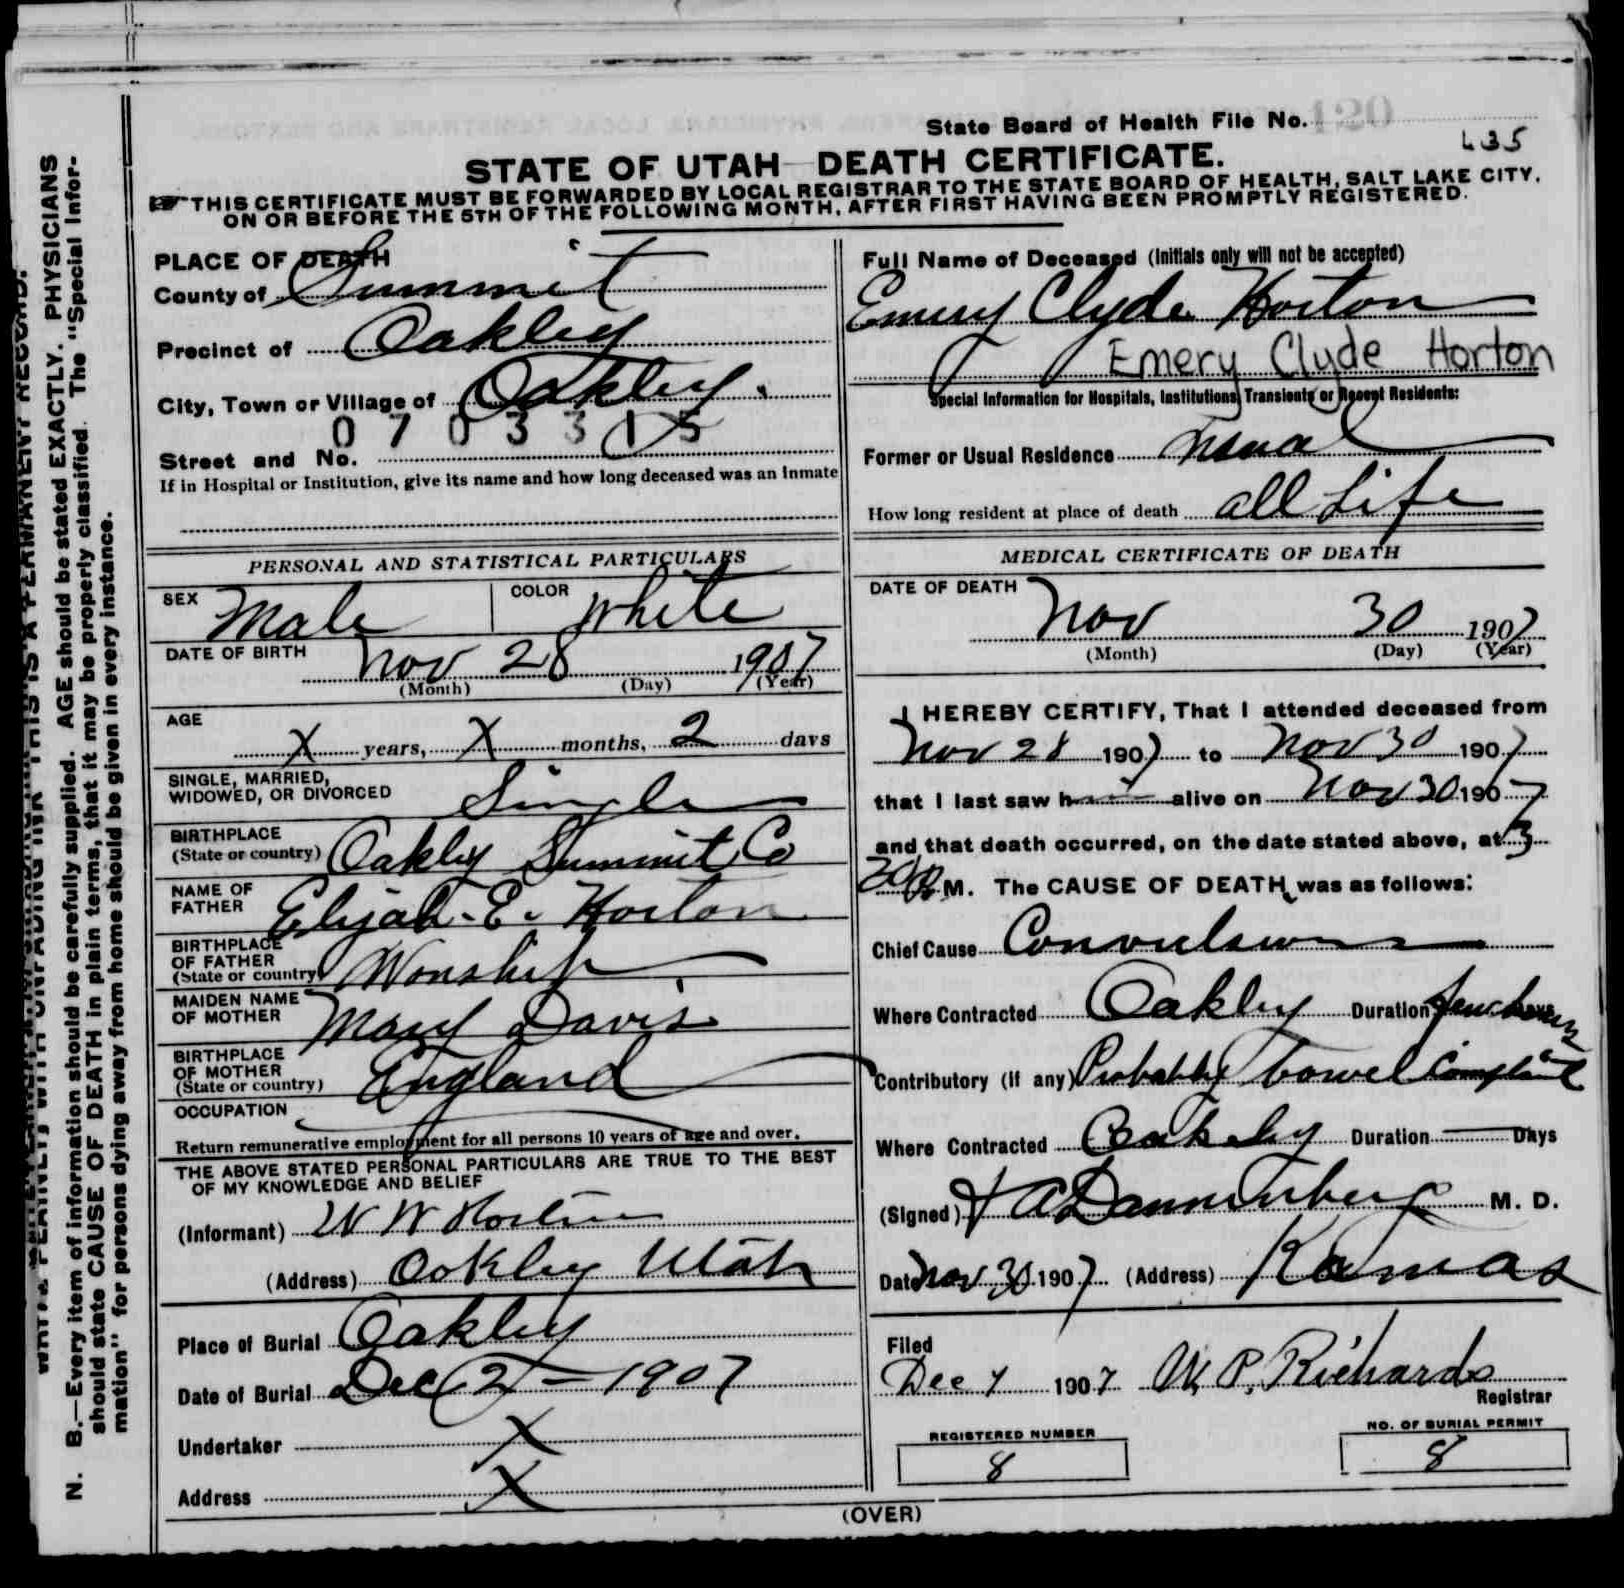 State Board of Health File No.
435
STATE OF UTAH—DEATH CERTIFICATE.
THIS CERTIFICATE MUST BE FORWARDED BY LOCAL REGISTRAR TO THE STATE BOARD OF HEALTH, SALT LAKE CITY,
ON OR BEFORE THE 5TH OF THE FOLLOWING MONTH, AFTER FIRST HAVING BEEN PROMPTLY REGISTERED.
PLACE OF DEATH
County of Summit
Precinct of Oakley
City, Town or Village of Oakley.
0703315
Street and No.
If in Hospital or Institution, give its name and how long deceased was an Inmate
Full Name of Deceased (Initials only will not be accepted)
Emery Clyde Horton
Emery Clyde Horton
Special Information for Hospitals, Institutions, Transients or Recent Residents:
Former or Usual Residence usual
How long resident at place of death all Life
PERSONAL AND STATISTICAL PARTICULARS
SEX Male COLOR White
DATE OF BIRTH Nov 28 1907
(Month) (Day) (Year)
AGE
X years, X months, 2 days
SINGLE, MARRIED,
WIDOWED, OR DIVORCED Single
BIRTHPLACE
(State or country) Oakley Summit Co
NAME OF
FATHER Elijah. E. Horton
BIRTHPLACE
OF FATHER
(State or country) Wonship
MAIDEN NAME
OF MOTHER Mary Davis
BIRTHPLACE
OF MOTHER
(State or country) England
OCCUPATION
Return remunerative employment for all persons 10 years of age and over.
THE ABOVE STATED PERSONAL PARTICULARS ARE TRUE TO THE BEST
OF MY KNOWLEDGE AND BELIEF
(Informant) W W Horton
(Address) Oakley Utah
Place of Burial Oakley
Date of Burial Dec 2 - 1907
Undertaker X
Address X
MEDICAL CERTIFICATE OF DEATH
DATE OF DEATH
Nov 30 1907
(Month) (Day) (Year)
I HEREBY CERTIFY, That I attended deceased from
Nov 28 1907 to Nov 30 1907
that I last saw him alive on Nov 30 1907
and that death occurred, on the date stated above, at 3
30 P. M. The CAUSE OF DEATH was as follows:
Chief Cause Convulsions
Where Contracted Oakley Duration few hours
Contributory (if any) Probably bowel Complaint
Where Contracted Oakley Duration — Days
(Signed) Dannenberg M. D.
Date Nov 30 1907 (Address) Kamas
Filed
Dec 7 1907 W. P. Richards
Registrar
REGISTERED NUMBER
8
NO. OF BURIAL PERMIT
8
(OVER)
N. B.—Every item of information should be carefully supplied. AGE should be stated EXACTLY. PHYSICIANS
should state CAUSE OF DEATH in plain terms, that it may be properly classified. The "Special Infor-
mation" for persons dying away from home should be given in every instance.